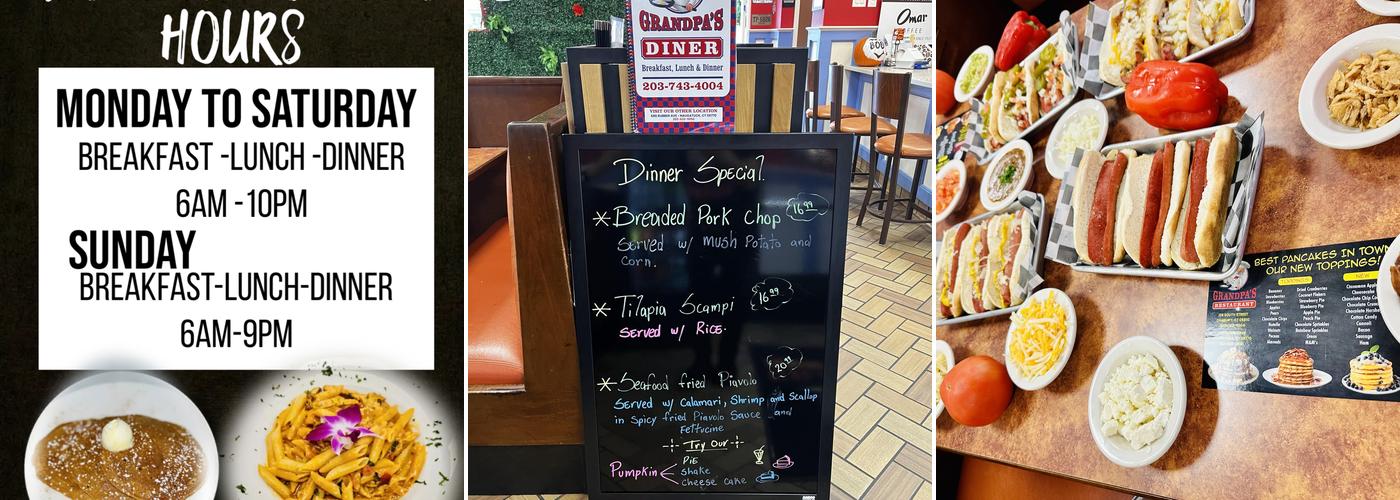 HOURS
MONDAY TO SATURDAY
BREAKFAST -LUNCH -DINNER
6AM -10PM
SUNDAY
BREAKFAST-LUNCH-DINNER
6AM-9PM
GRANDPA'S
DINER
Breakfast, Lunch & Dinner
203-743-4004
VISIT OUR OTHER LOCATION
Omar
COFFEE
BOO
Dinner Special.
*Breaded Pork Chop 16.99
Served w/ Mush Potato and
Corn.
*Tilapia Scampi 16.99
Served w/ Rice.
*Seafood fried Piavolo 20.99
Served w/ Calamari, Shrimp and Scallop
in Spicy fried Piavolo Sauce and
Fettucine
Try Our
Pumpkin
Pie
Shake
cheese cake
BEST PANCAKES IN TOWN
OUR NEW TOPPINGS!
GRANDPA'S
RESTAURANT
TOPPINGS
NEW
Bananas
Strawberries
Blueberries
Apples
Pears
Chocolate Chips
Nutella
Walnuts
Pecans
Dried Cranberries
Coconut Flakes
Strawberry Pie
Blueberry Pie
Apple Pie
Peach Pie
Chocolate Sprinkles
Rainbow Sprinkles
Oreos
M&M's
Cotton Candy
Cannoli
Bacon
Sausage
Ham